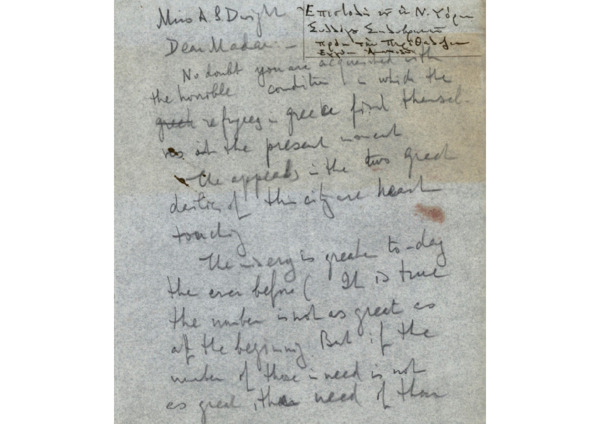 Miss A B Dwight
Ἐπιστολὴ Ν. Υόρκ
Dear Madam —
No doubt you are acquainted with
the horrible condition in which the
greek refugees in greece find themsel-
ves at the present moment
The appeals in the two Greek
dailies of this city are heart
touching
The misery is greater to-day
the ever before ( It is true
the number is not as great as
at the beginning But if the
number of those in need is not
as great, the need of those